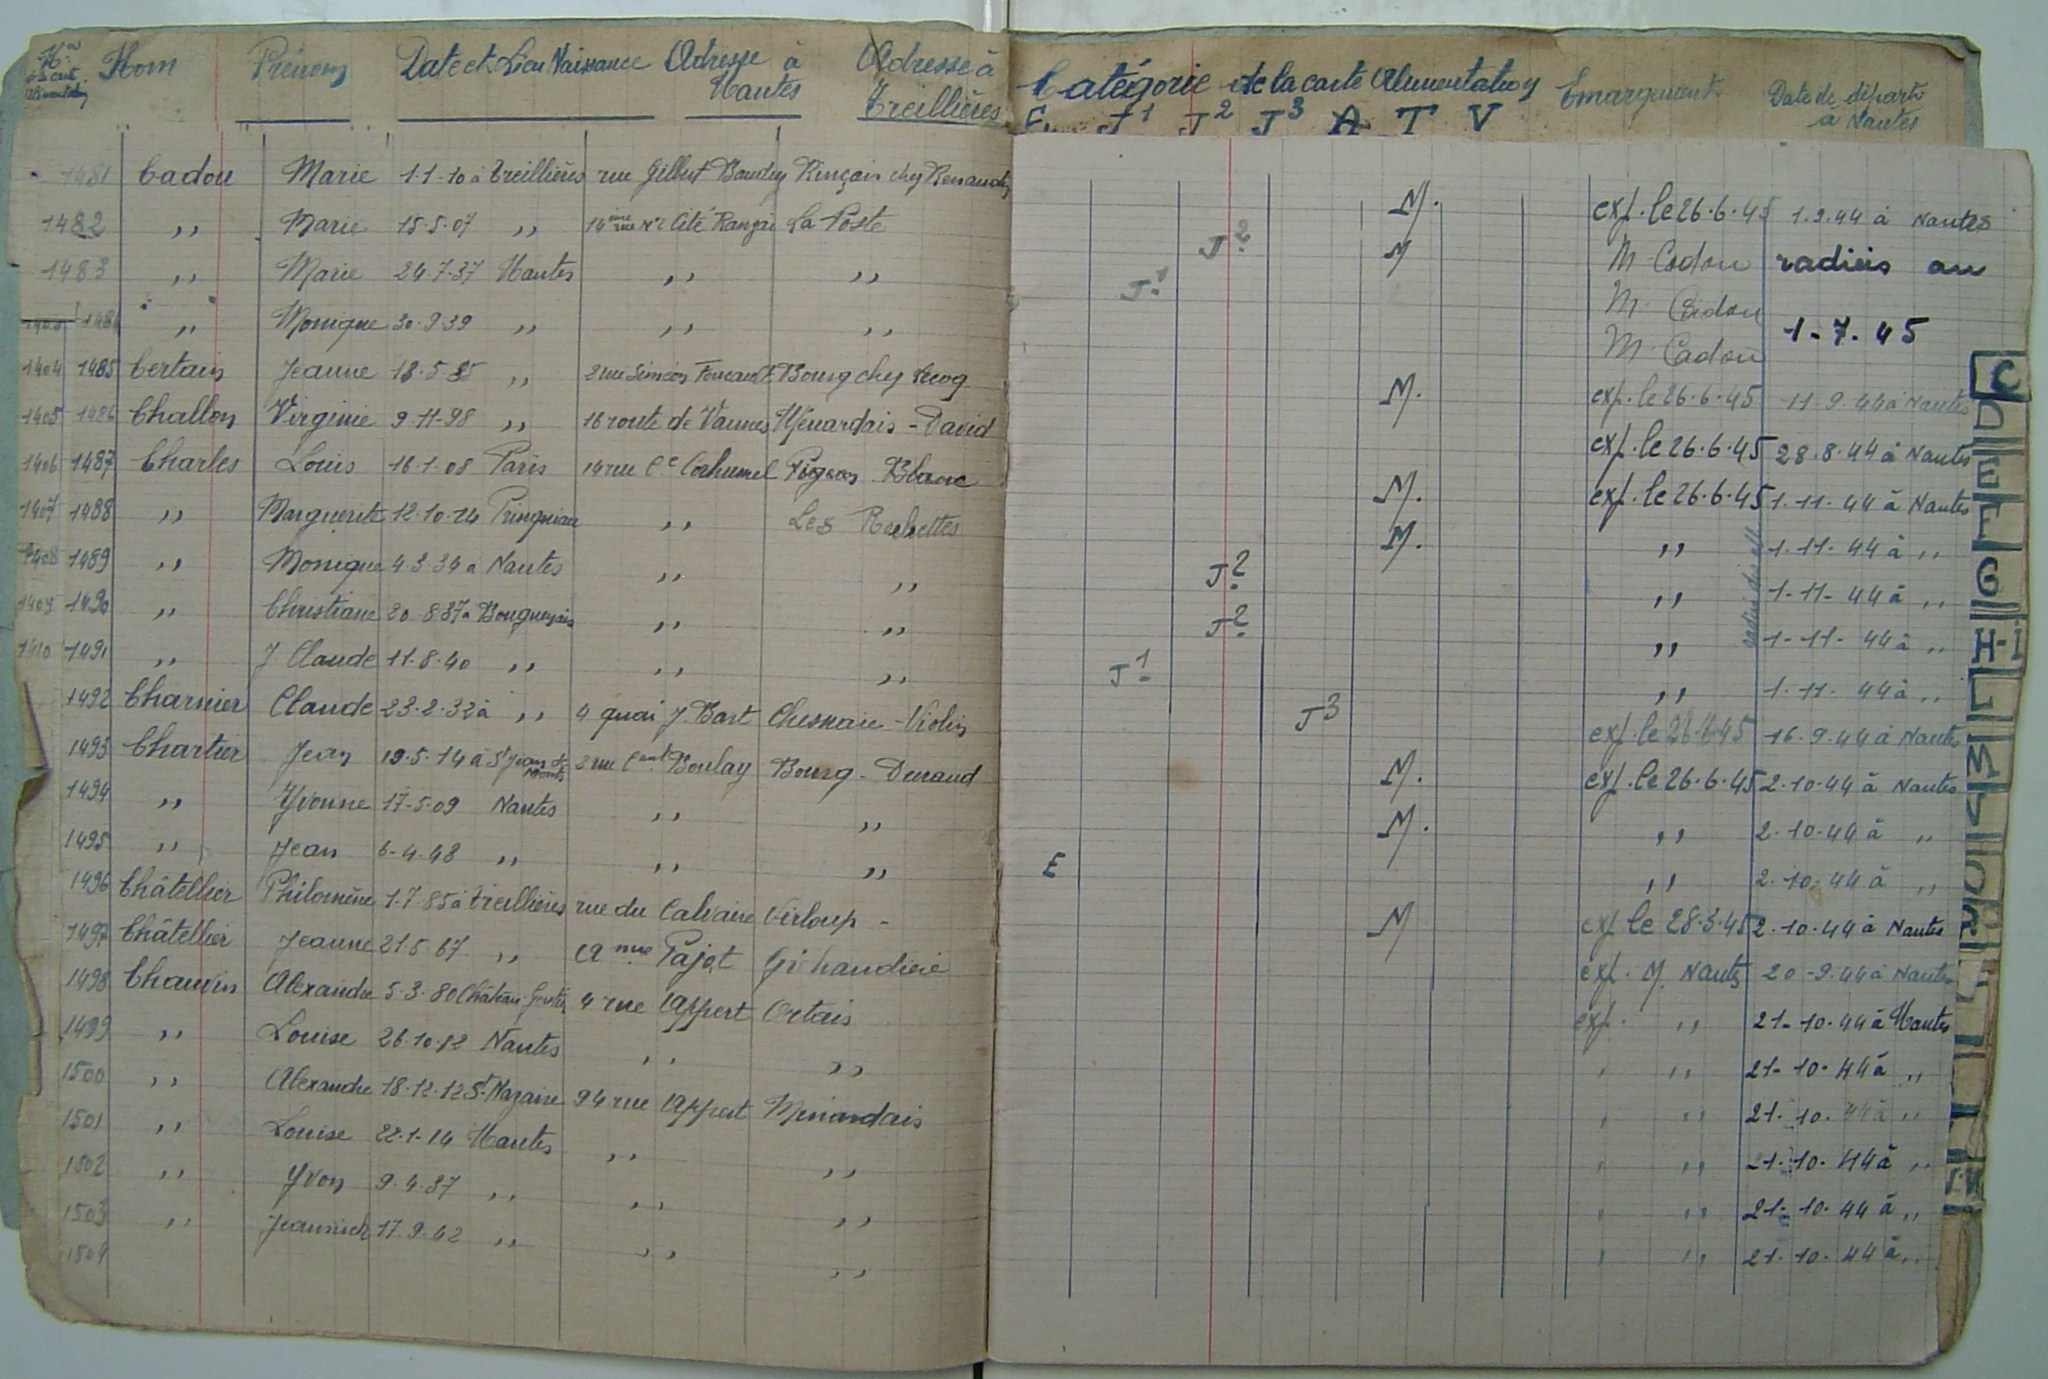 Nom Prénom Date et Lieu Naissance Adresse à Nantes Adresse à Treillières Catégorie de la carte Alimentation Emargement Date de départ à Nantes
E. J1 J2 J3 A T V
1481 Cadou Marie 1.1.10 à Treillières rue Gilbert Baudry Rinçais chez Renaudin M. exp. le 26.6.45 1.9.44 à Nantes
1482 ,, Marie 15.5.07 ,, La Poste J2 M M Cadou radiés au
1483 ,, Marie 24.7.37 Nantes ,, ,, J1 M. Cadou
1484 ,, Monique 30.9.39 ,, ,, ,, M. Cadou 1-7.45
1404 1485 Certain Jeanne 18.5.85 ,, 2 rue Siméon Foucault Bourg chez Lecoq M. exp. le 26.6.45 11.9.44 à Nantes
1405 1486 Challon Virginie 9.11.98 ,, 16 route de Vannes Ménardais - David exp. le 26.6.45 28.8.44 à Nantes
1406 1487 Charles Louis 16.1.08 Paris 14 rue Pigeon Blanc M. exp. le 26.6.45 1.11.44 à Nantes
1407 1488 ,, Marguerite 12.10.14 Pringuiau ,, Les Rochettes M. ,, 1.11.44 à ,,
1408 1489 ,, Monique 4.3.34 à Nantes ,, ,, J2 ,, 1-11-44 à ,,
1409 1490 ,, Christiane 20.8.37 à Bouguenais ,, ,, J2 ,, 1-11-44 à ,,
1410 1491 ,, J Claude 11.8.40 ,, ,, ,, J1 ,, 1.11.44 à ,,
1492 Charnier Claude 23.2.32 à ,, 4 quai J. Bart Chesnaie - Violin J3 exp. le 26.6.45 16.9.44 à Nantes
1493 Chartier Jean 19.5.14 à St Jean de Monts 2 rue Cant Boulay Bourg - Durand M. exp. le 26.6.45 2.10.44 à Nantes
1494 ,, Yvonne 17.5.09 Nantes ,, ,, M. ,, 2.10.44 à ,,
1495 ,, Jean 6-4.43 ,, ,, ,, E ,, 2.10.44 à ,,
1496 Châtellier Philomène 1.7.85 à Treillières rue du Calvaire Virloup - M exp le 28.3.45 2.10.44 à Nantes
1497 Châtellier Jeanne 21.5.67 ,, Pajot Gîchandière exp. M. Nantes 20-9.44 à Nantes
1498 Chauvin Alexandre 5.3.80 Château-Gontier 4 rue Appert Ortais exp. ,, 21-10.44 à Nantes
1499 ,, Louise 26.10.12 Nantes ,, ,, ,, 21-10-44 à ,,
1500 ,, Alexandre 18.12.12 St Nazaire 94 rue Appert Ménardais ,, 21.10.44 à ,,
1501 ,, Louise 22.1-14 Nantes ,, ,, ,, 21-10.44 à ,,
1502 ,, Yvon 9.4.37 ,, ,, ,, ,, 21-10.44 à ,,
1503 ,, Jeannick 17.9.42 ,, ,, ,, ,, 21.10.44 à ,,
1504
C
D
E
F
G
H-I
L
M